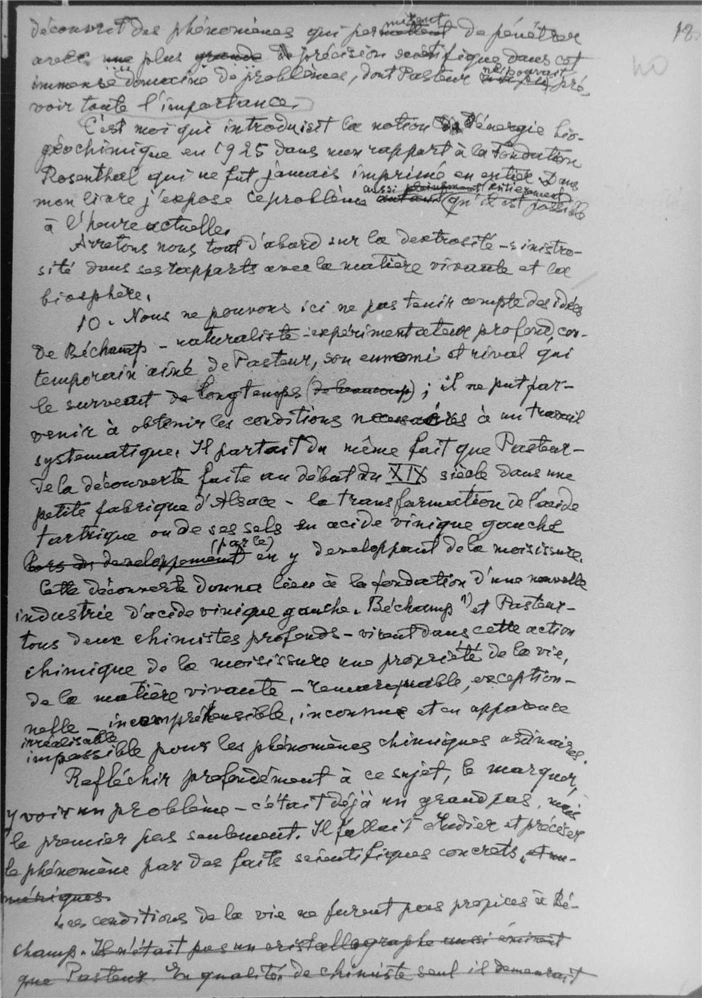 12
découvrit des phénomènes qui permettent de pénétrer
avec une plus grande de précision scientifique dans cet
immense domaine de problèmes, dont Pasteur ne pouvait pré-
voir toute l'importance.
C'est moi qui introduisit la notion d'énergie bio-
géochimique en 1925 dans mon rapport à la Fondation
Rosenthal qui ne fut jamais imprimé en entier. Dans
mon livre j'expose ce problème aussi pleinement entièrement qu'il est possible
à l'heure actuelle.
Arretons nous tout d'abord sur la dextrosité – sinistro-
sité dans ses rapports avec la matière vivante et la
biosphère.
10. Nous ne pouvons ici ne pas tenir compte des idées
de Béchamp – naturaliste-expérimentateur profond, con-
temporain aîné de Pasteur, son ennemi et rival qui
le survecut de longtemps (de beaucoup) ; il ne put par-
venir à obtenir les conditions necessaires à un travail
systematique. Il partait du même fait que Pasteur –
de la découverte faite au début du XIX siècle dans une
petite fabrique d'Alsace – la transformation de l'acide
tartrique ou de ses sels en acide vinique gauche
(par le)
lors du developpement en y developpant de la moisissure.
Cette découverte donna lieu à la fondation d'une nouvelle
industrie d'acide vinique gauche. Béchamp 1) et Pasteur –
tous deux chimistes profonds – virent dans cette action
chimique de la moisissure une propriété de la vie,
de la matière vivante – remarquable, exception-
nelle – incomprehensible, inconnue et en apparence
irréalisable
impossible pour les phénomènes chimiques ordinaires.
Reflèchir profondément à ce sujet, le marquer,
y voir un problème – c'était déjà un grand pas, mais
le premier pas seulement. Il fallait étudier et préciser
le phénomène par des faits scientifiques concrets, et nu-
mériques.
Les conditions de la vie ne furent pas propices à Bé-
champ. Il n'était pas un cristallographe aussi éminent
que Pasteur. En qualité de chimiste seul il demeurait